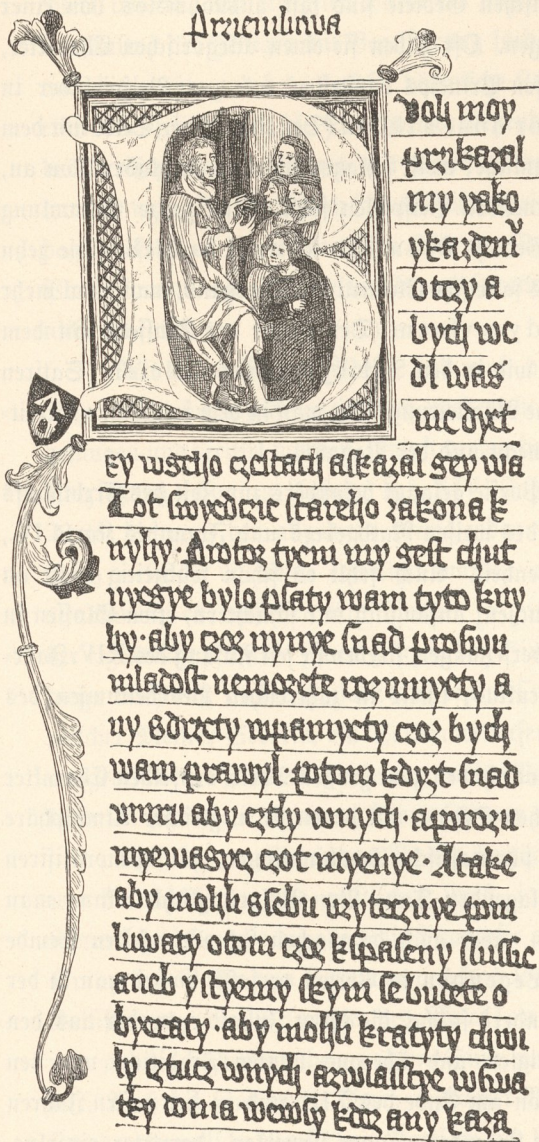 Prziemluwa
Buoh moy
przikazal
my yako
ykazdemu
otczy a
bych we
dl was
me dyet
ky wgeho czestach askazal gey wā
Tot swyedczie stareho zakona k
nyhy. Protoz tyem my gest chut
nyegye bylo psaty wam tyto kny
hy. aby czoz nynye snad proswu
mladost nemozete rozumyety a
ny sdrzety wpamyety czoz bych
wam prawyl. potom kdyzt snad
vmru aby cztly wnych. aporozu
myewagycz czot myenye. Atake
aby mohli ssebu vzytecznye pom
luwaty otom czoz kspaseny slussie
aneb ystyemy skym se budete o
byeraty. aby mohli kratyty chwi
ly cztucz wnych. azwlasstye wswa
tky doma wewsy kdez any kaza